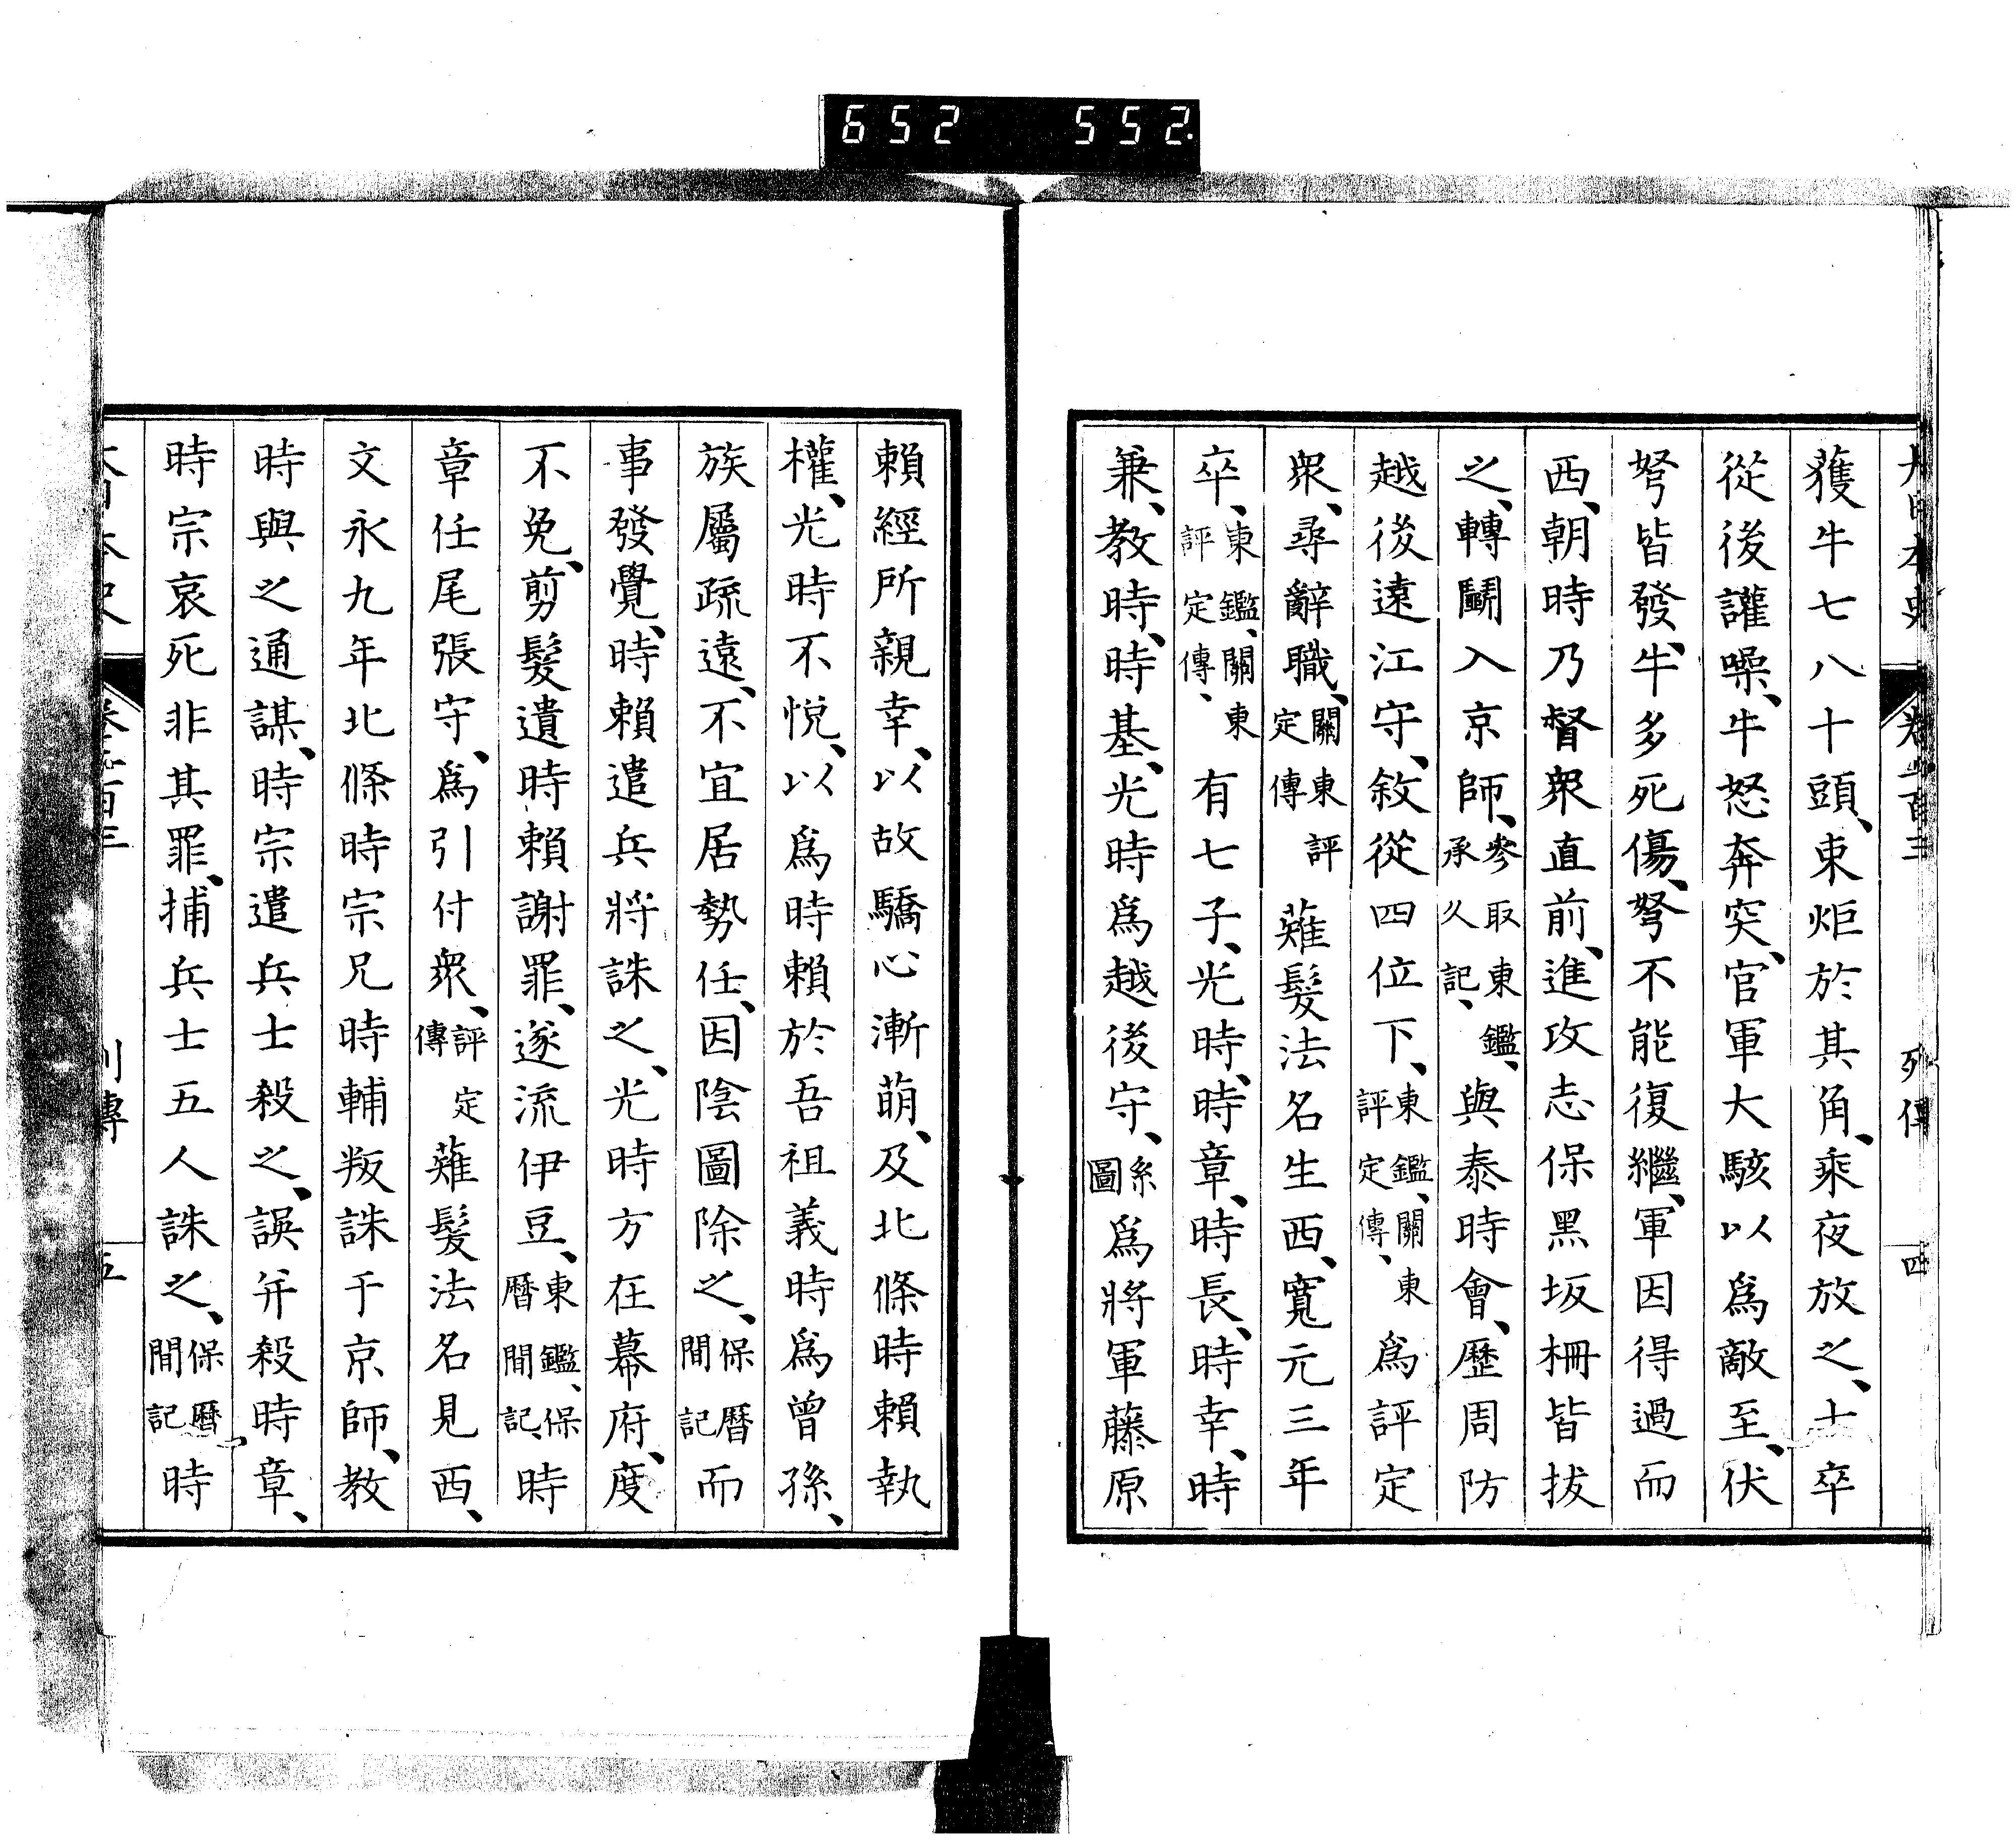 652 552.
大日本史 卷二百三 列傳 四
獲牛七八十頭、束炬於其角、乘夜放之、士卒
從後讙噪、牛怒奔突、官軍大駭以爲敵至、伏
弩皆發、牛多死傷、弩不能復繼、軍因得過而
西、朝時乃督衆直前、進攻志保黑坂柵皆拔
之、轉鬭入京師、參取東鑑、承久記、與泰時會、歷周防
越後遠江守、敘從四位下、東鑑、關東評定傳、爲評定
衆、尋辭職、關東評定傳 薙髮法名生西、寬元三年
卒、東鑑、關東評定傳、 有七子、光時、時章、時長、時幸、時
兼、教時、時基、光時爲越後守、系圖 爲將軍藤原
賴經所親幸、以故驕心漸萌、及北條時賴執
權、光時不悅、以爲時賴於吾祖義時爲曾孫、
族屬疏遠、不宜居勢任、因陰圖除之、保曆間記 而
事發覺、時賴遣兵將誅之、光時方在幕府、度
不免、剪髮遺時賴謝罪、遂流伊豆、東鑑、保曆間記、時
章任尾張守、爲引付衆、評定傳 薙髮法名見西、
文永九年北條時宗兄時輔叛誅于京師、教
時與之通謀、時宗遣兵士殺之、誤并殺時章、
時宗哀死非其罪、捕兵士五人誅之、保曆間記 時
大日本史 卷二百三 列傳 五